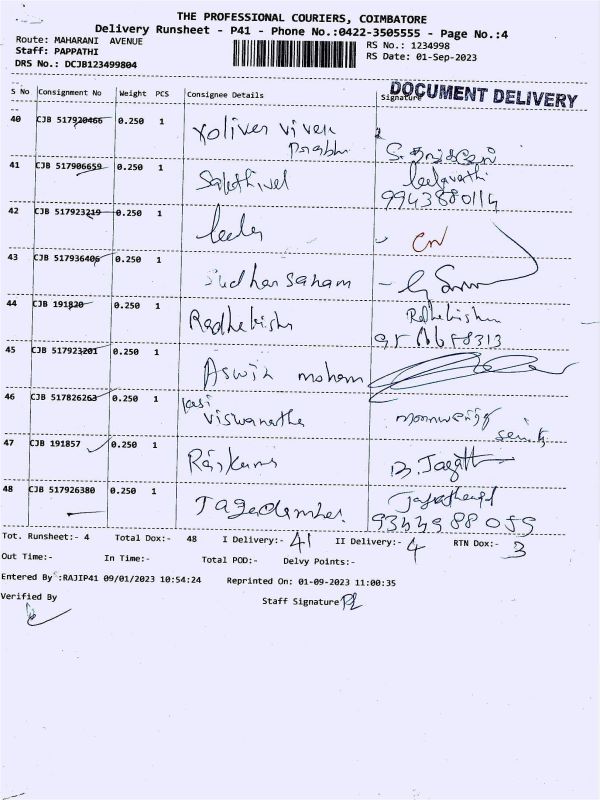 THE PROFESSIONAL COURIERS, COIMBATORE
Delivery Runsheet - P41 - Phone No.:0422-3505555 - Page No.:4
Route: MAHARANI AVENUE
RS No.: 1234998
Staff: PAPPATHI
RS Date: 01-Sep-2023
DRS No.: DCJB123499804
DOCUMENT DELIVERY
S No Consignment No Weight PCS Consignee Details Signature
40 CJB 517920466 0.250 1
Prabhu
41 CJB 517906659 0.250 1 Sakthivel
9943880114
42 CJB 517923219 0.250 1 leela
43 CJB 517936406 0.250 1 Sudharsanam
44 CJB 191820 0.250 1
45 CJB 517923201 0.250 1 Aswin mohan
46 CJB 517826263 0.250 1 kasi
viswanatha
47 CJB 191857 0.250 1 B. Jagath
48 CJB 517926380 0.250 1
Tot. Runsheet:- 4 Total Dox:- 48 I Delivery:- 41 II Delivery:- 4 RTN Dox:- 3
Out Time:- In Time:- Total POD:- Delvy Points:-
Entered By :RAJIP41 09/01/2023 10:54:24 Reprinted On: 01-09-2023 11:00:35
Verified By Staff Signature